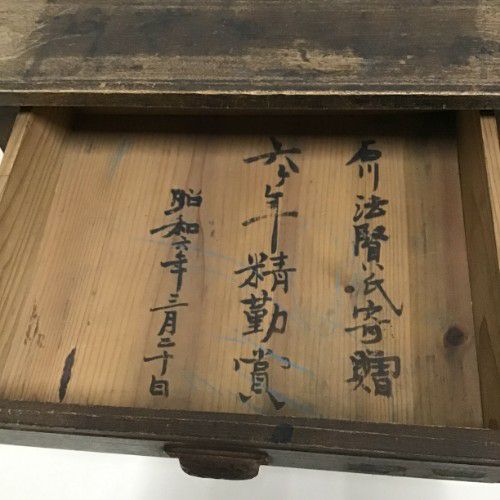 石川法賢氏寄贈
六ヶ年精勤賞
昭和六年三月二十日